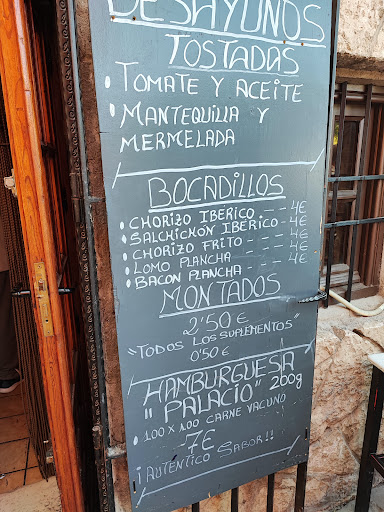 DESAYUNOS
TOSTADAS
• TOMATE Y ACEITE
• MANTEQUILLA Y
MERMELADA
BOCADILLOS
• CHORIZO IBERICO - - - 4€
• SALCHICHÓN IBERICO - 4€
• CHORIZO FRITO - - - 4€
• LOMO PLANCHA - - - 4€
• BACON PLANCHA - - - 4€
MONTADOS
2'50€
"TODOS LOS SUPLEMENTOS"
0'50€
HAMBURGUESA
"PALACIO" 200g
• 100 X 100 CARNE VACUNO
7€
¡AUTÉNTICO SABOR!!